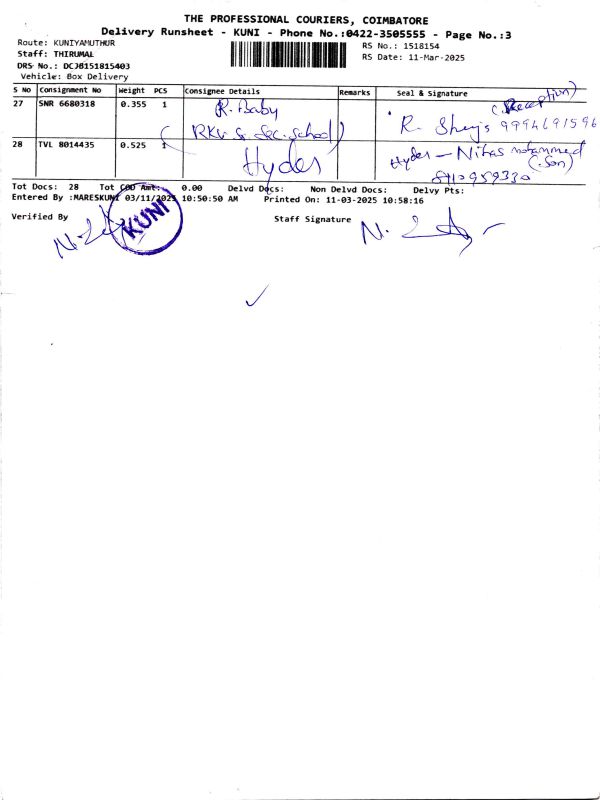 THE PROFESSIONAL COURIERS, COIMBATORE
Delivery Runsheet - KUNI - Phone No.:0422-3505555 - Page No.:3
Route: KUNIYAMUTHUR
RS No.: 1518154
Staff: THIRUMAL
RS Date: 11-Mar-2025
DRS No.: DCJ8151815403
Vehicle: Box Delivery
S No Consignment No Weight PCS Consignee Details Remarks Seal & Signature
27 SNR 6680318 0.355 1 R. Baby (Reception)
(RKV. S. Sec. School) R. 9994691596
28 TVL 8014435 0.525 1 Hyder Hyder - Nihas mohammed
(Son)
8110959330
Tot Docs: 28 Tot COD Amt: 0.00 Delvd Docs: Non Delvd Docs: Delvy Pts:
Entered By :MARESKUNI 03/11/2025 10:50:50 AM Printed On: 11-03-2025 10:58:16
Verified By KUNI Staff Signature